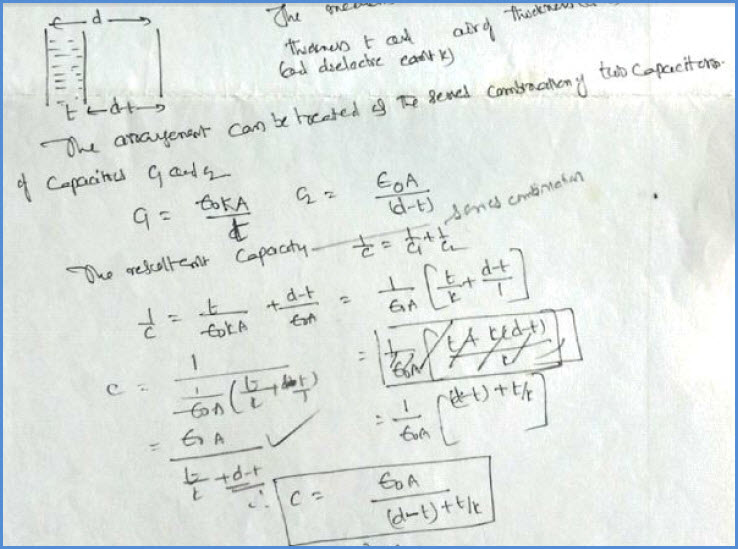 d
The
thickness t and air of thickness
(and dielectric const k)
t d-t
The arrangement can be treated as the series combination of two capacitors.
of capacities C1 and C2
C1 = ε0KA/t C2 = ε0A/(d-t)
The resultant capacity 1/C = 1/C1 + 1/C2 series combination
1/C = t/ε0KA + d-t/ε0A = 1/ε0A [t/k + d-t/1]
= 1/ε0A [t + k(d-t)/k]
C = 1/(1/ε0A (t/k + d-t/1))
= 1/ε0A [(d-t) + t/k]
= ε0A/(t/k + d-t)
∴ C = ε0A/((d-t) + t/k)